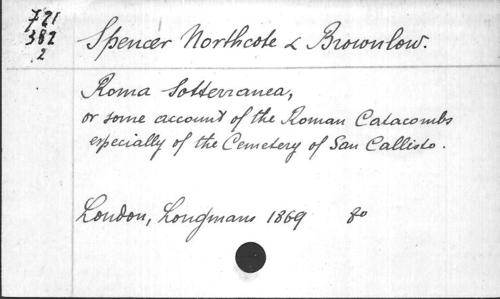 721
382
2
Spencer Northcote & Brownlow.
Roma Sotterranea,
or some account of the Roman Catacombs
especially of the Cemetery of San Callisto.
London, Longmans 1869 8o